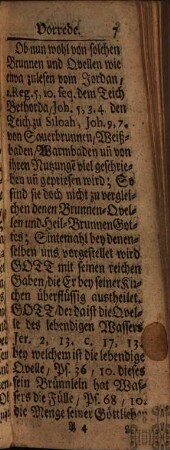 Vorrede. 7
Ob nun wohl von solchen
Brunnen und Qvellen wie
etwa zulesen vom Jordan,
2. Reg. 5, 10. seq. dem Teich
Bethorda, Joh. 5, 3. 4 den
Teich zu Siloah, Joh. 9, 7.
von Sauerbrunnen, Weiß-
baden, Warmbaden uñ von
ihren Nutzungē viel geschrie-
ben uñ gepriesen wird; So
sind sie doch nicht zu verglei-
chen denen Brunnen-Qvel-
len und Heil-Brunnen Got-
tes; Sintemahl bey denen-
selben uns vorgestellet wird
GOTT mit seinen reichen
Gaben, die Er bey seiner Kir-
chen überflüssig austheilet.
GOTT, der da ist die Qvel-
le des lebendigen Wassers
Jer, 2, 13. c. 17, 13.
bey welchem ist die lebendige
Qvelle, Ps. 36, 10. dieses
sein Brünnlein hat Was-
sers die Fülle, Ps. 68, 10.
die Menge seiner Göttlichen
A 4